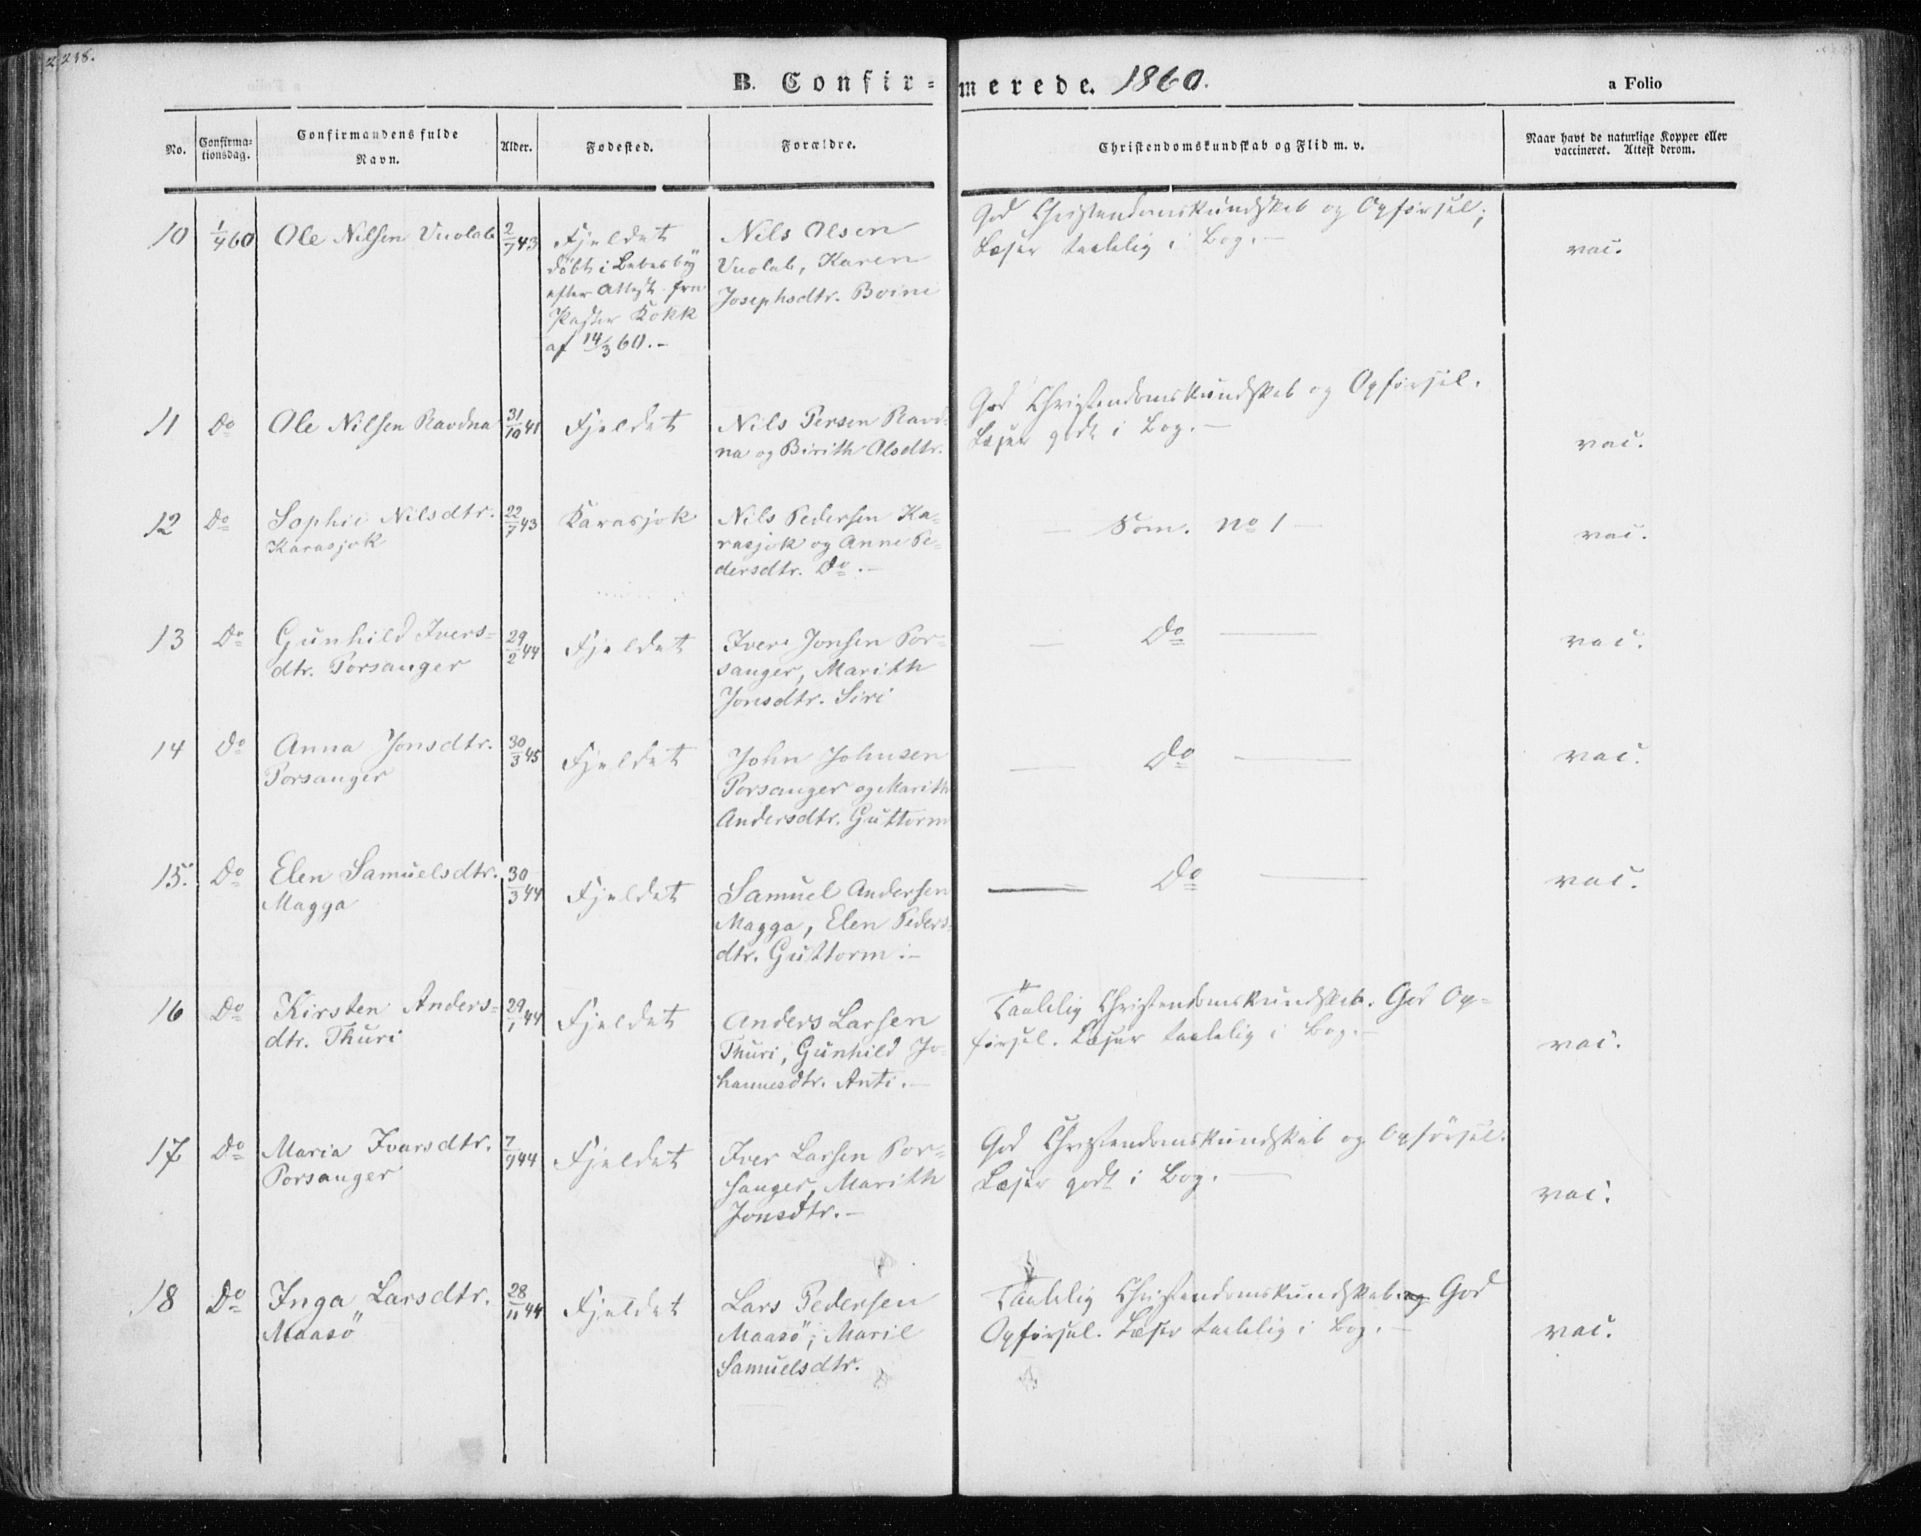 2218.
B. Confir-merede. 1860.
a Folio
No.
Confirma-
tionsdag.
Confirmandens fulde
Navn.
Alder.
Fødested.
Forældre.
Christendomskundskab og Flid m. v.
Naar havt de naturlige Kopper eller
vaccineret. Attest derom.
10 1/4 60 Ole Nilsen Vuolab 2/7 43
Fjeldet
döbt i Lebesby
efter Attest fra
Pastor Kokk
af 14/3 60.-
Nils Olsen
Vuolab, Karen
Josephsdtr. Boini
God Christendomskundskab og Opförsel;
Læser taalelig i Bog.-
vac.
11 Do Ole Nilsen Ravdna 31/10 41 Fjeldet
Nils Persen Ravd-
na og Birith Olsdtr.
God Christendomskundskab og Opförsel.
Læser godt i Bog.-
vac.
12 Do Sophie Nilsdtr.
Karasjok
22/7 43 Karasjok
Nils Pedersen Ka-
rasjok og Anne Pe-
dersdtr. Do.-
- Som. No 1 -
vac.
13 Do Gunhild Ivers-
dtr. Porsanger
29/2 44 Fjeldet
Iver Jonsen Por-
sanger, Marith
Jonsdtr. Siri
- Do -
vac.
14 Do Anna Jonsdtr.
Porsanger
30/3 45 Fjeldet
John Johnsen
Porsanger og Marith
Andersdtr. Guttorm
- Do -
vac.
15. Do Elen Samuelsdtr.
Magga
30/3 44 Fjeldet
Samuel Andersen
Magga, Elen Peders-
dtr. Guttorm.-
- Do -
vac.
16 Do Kirsten Anders-
dtr. Thuri
29/1 44 Fjeldet
Anders Larsen
Thuri, Gunhild Jo-
hannesdtr. Anti.-
Taalelig Christendomskundskab. God Op-
försel. Læser taalelig i Bog.-
vac.
17 Do Maria Ivarsdtr.
Porsanger
7/9 44 Fjeldet
Iver Larsen Por-
sanger, Marith
Jonsdtr.-
God Christendomskundskab og Opförsel.
Læser godt i Bog.-
vac.
18 Do Inga Larsdtr.
Maasö
28/11 44 Fjeldet
Lars Pedersen
Maasö, Maril
Samuelsdtr.
Taalelig Christendomskundskab og God
Opförsel. Læser taalelig i Bog.-
vac.